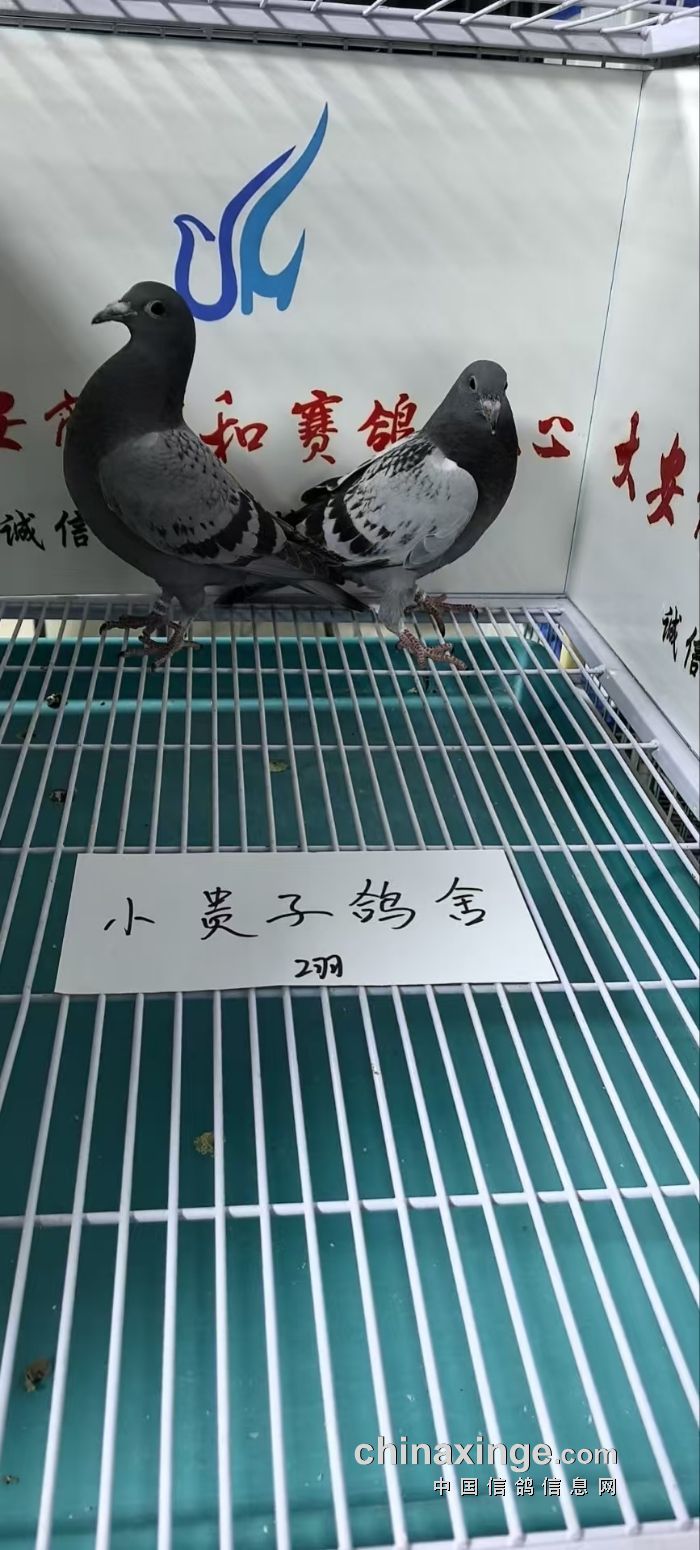 和赛鸽
心
大安
诚信
诚信
小贵子鸽舍
2羽
chinaxinge.com
中国信鸽信息网